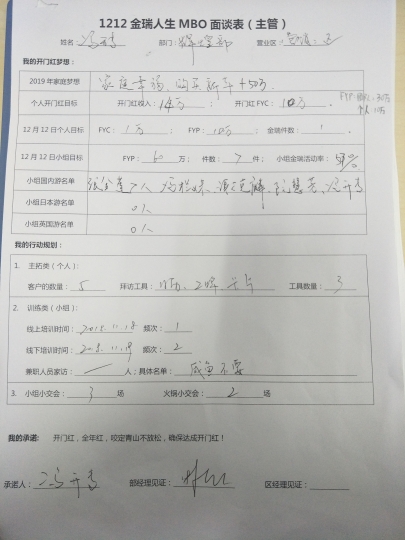 1212 金瑞人生 MBO 面谈表（主管）
姓名： 部门： 营业区：
我的开门红梦想：
2019 年家庭梦想 家庭幸福、购车新车+50万.
个人开门红目标 开门红收入：14万； 开门红 FYC： 10万
12 月 12 日个人目标 FYC： 1万； FYP： 10万； 金瑞件数： 1
12 月 12 日小组目标 FYP： 60 万； 件数： 7 件； 小组金瑞活动率：
小组国内游名单
小组日本游名单 0人
小组英国游名单 0人
我的行动规划：
1. 主拓类（个人）：
客户的数量： 5 拜访工具： 工具数量： 3
2. 训练类（小组）：
线上培训时间： 2018.11.18 频次： 1
线下培训时间： 2018.11.19 频次： 2
兼职人员家访： 人；具体名单： 咸鱼不要
3. 小组小交会： 3 场 火锅小交会： 2 场
我的承诺： 开门红，全年红，咬定青山不放松，确保达成开门红！
承诺人： 部经理见证： 区经理见证：